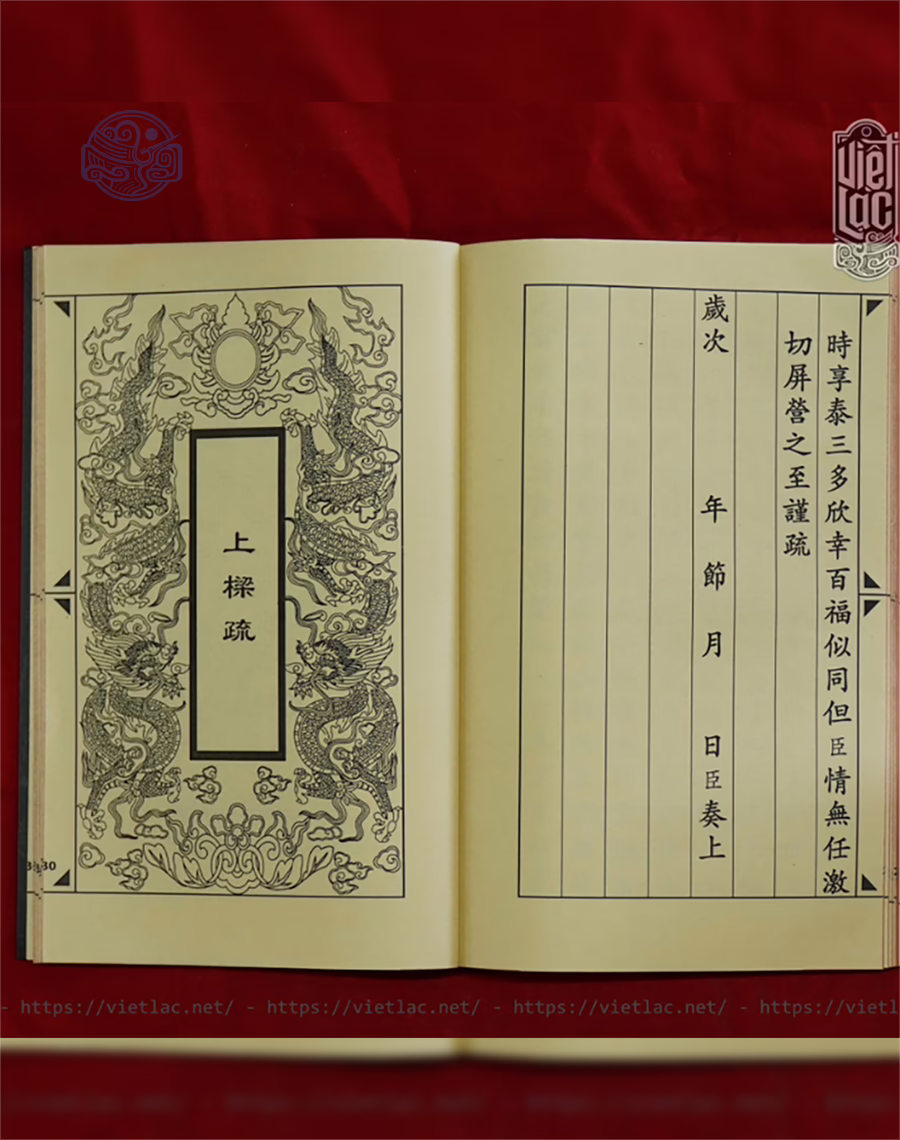 Việt
Lạc
時享泰三多欣幸百福似同但臣情無任激
切屏營之至謹疏
歲次 年 節 月 日臣奏上
上樑疏
30
- https://vietlac.net/ - https://vietlac.net/ - https://vietlac.net/ - https://vietl